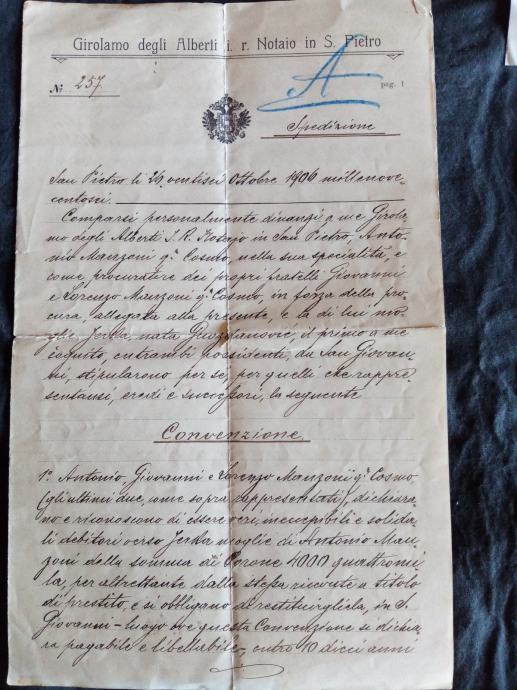 Girolamo degli Alberti i. r. Notaio in S. Pietro
A
№ 257
pag. 1
Spedizione
San Pietro li 26 ventisei Ottobre 1906 millenove-
centosei.
Comparsi personalmente dinanzi a me Girola-
mo degli Alberti I. R. Notajo in San Pietro, Anto-
nio Manzoni q.m Cosmo, nella sua specialità, e
come procuratore dei propri fratelli Giovanni
e Lorenzo Manzoni q.m Cosmo, in forza della pro-
cura allegata alla presente, e la di lui mo-
glie Jerka nata, il primo a me
cognito, entrambi possidenti, da San Giovan-
ni, stipularono per se, per quelli che rappre-
sentansi, eredi e successori, la seguente
Convenzione.
1º Antonio, Giovanni e Lorenzo Manzoni q.m Cosmo
(gli ultimi due, come sopra rappresentati), dichiara-
no e riconoscono di essere veri, inecepibili e solida-
li debitori verso Jerka moglie di Antonio Man-
zoni della somma di Corone 4000 quattromi-
la, per altrettante dalla stessa ricevute a titolo
di prestito, e si obbligano di restituirgliela, in S.
Giovanni - luogo ove questa Convenzione si dichia-
ra pagabile e libellabile -, entro 10 dieci anni